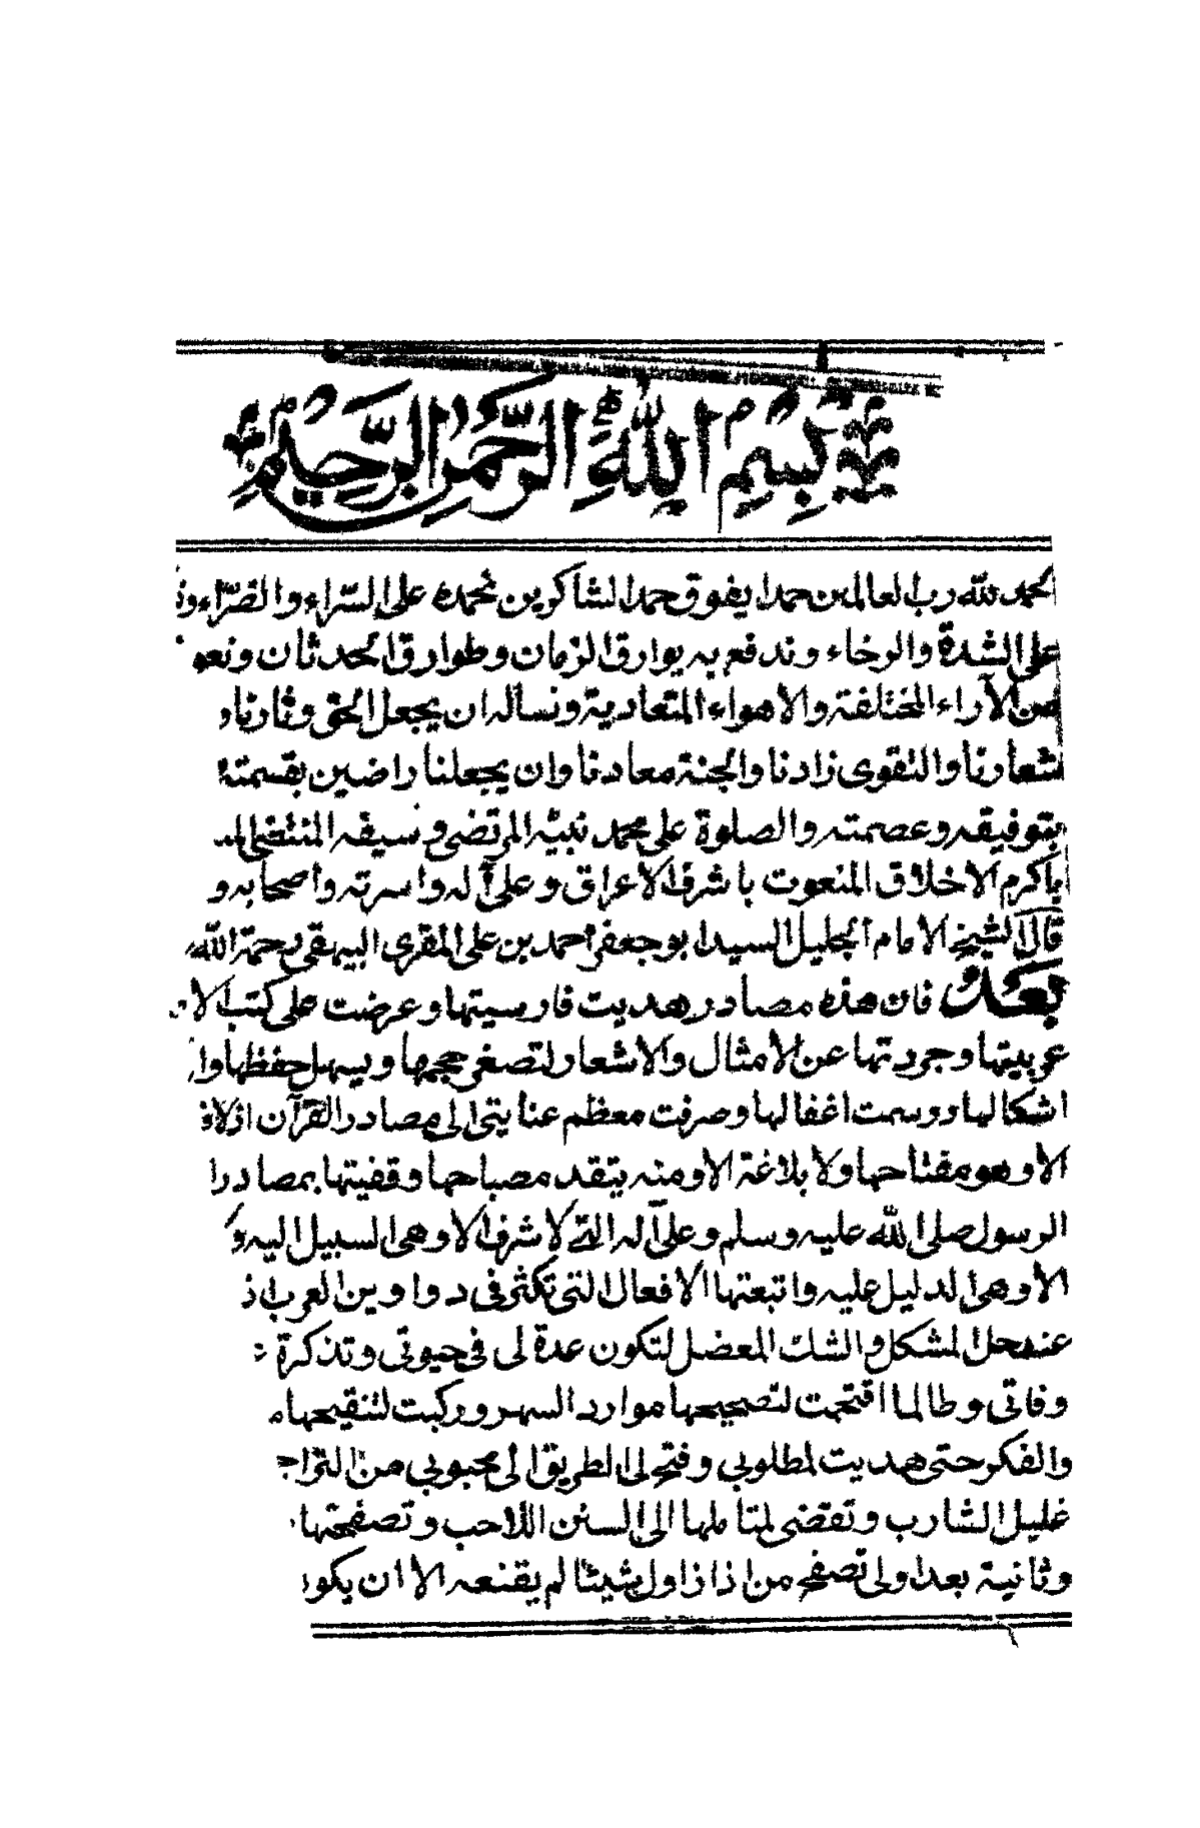 بسم الله الرحمن الرحيم
الحمد لله رب العالمين حمدا يفوق حمد الشاكرين نحمده على السّراء والضرّاء و
على الشدة والرخاء وندفع به بوارق الزمان وطوارق الحدثان ونعو
من الآراء المختلفة والاهواء المتعادية ونسأله ان يجعل الحق دثارنا و
شعارنا والتقوى زادنا والجنة معادنا وان يجعلنا راضين بقسمته
بتوفيقه وعصمته والصلوة على محمد نبيّه المرتضى وسيفه المنتضى
باكرم الاخلاق المنعوت باشرف الاعراق وعلى آله واسرته وأصحابه و
قال الشيخ الامام الجليل السيد ابو جعفر أحمد بن على المقرى البيهقى رحمة الله
بعد فان هذه مصادر هديت فارسيتها وعرضت على كتب الا
عربيتها وجردتها عن الامثال والاشعار لتصغر حجمها ويسهل حفظها وا
اشكالها ووسمت اغفالها وصرفت معظم عنايتى الى مصادر القرآن اذ لا
الا وهو مفتاحها ولا بلاغة الا ومنه يتقد مصباحها وقفيتها بمصادر ا
الرسول صلى الله عليه وسلم وعلى آله التى لا شرف الا وهى السبيل اليه و
الا وهى الدليل عليه واتبعتها الافعال التى تكثر فى دواوين العرب اذ
عند حل المشكل والشك المعضل لتكون عدة لى فى حيوتى وتذكرة
وفاتى وطالما اقتحمت لتصحيحها موارد السهر وركبت لتنقيحها م
والفكر حتى هديت لمطلوبى وفتح لى الطريق الى محبوبى من
غليل الشارب وتفضى لمتأملها الى السنن اللاحب وتصفحتها
وثانية بعد اولى تصفح من اذا زاول شيئا لم يقنعه الا ان يكو